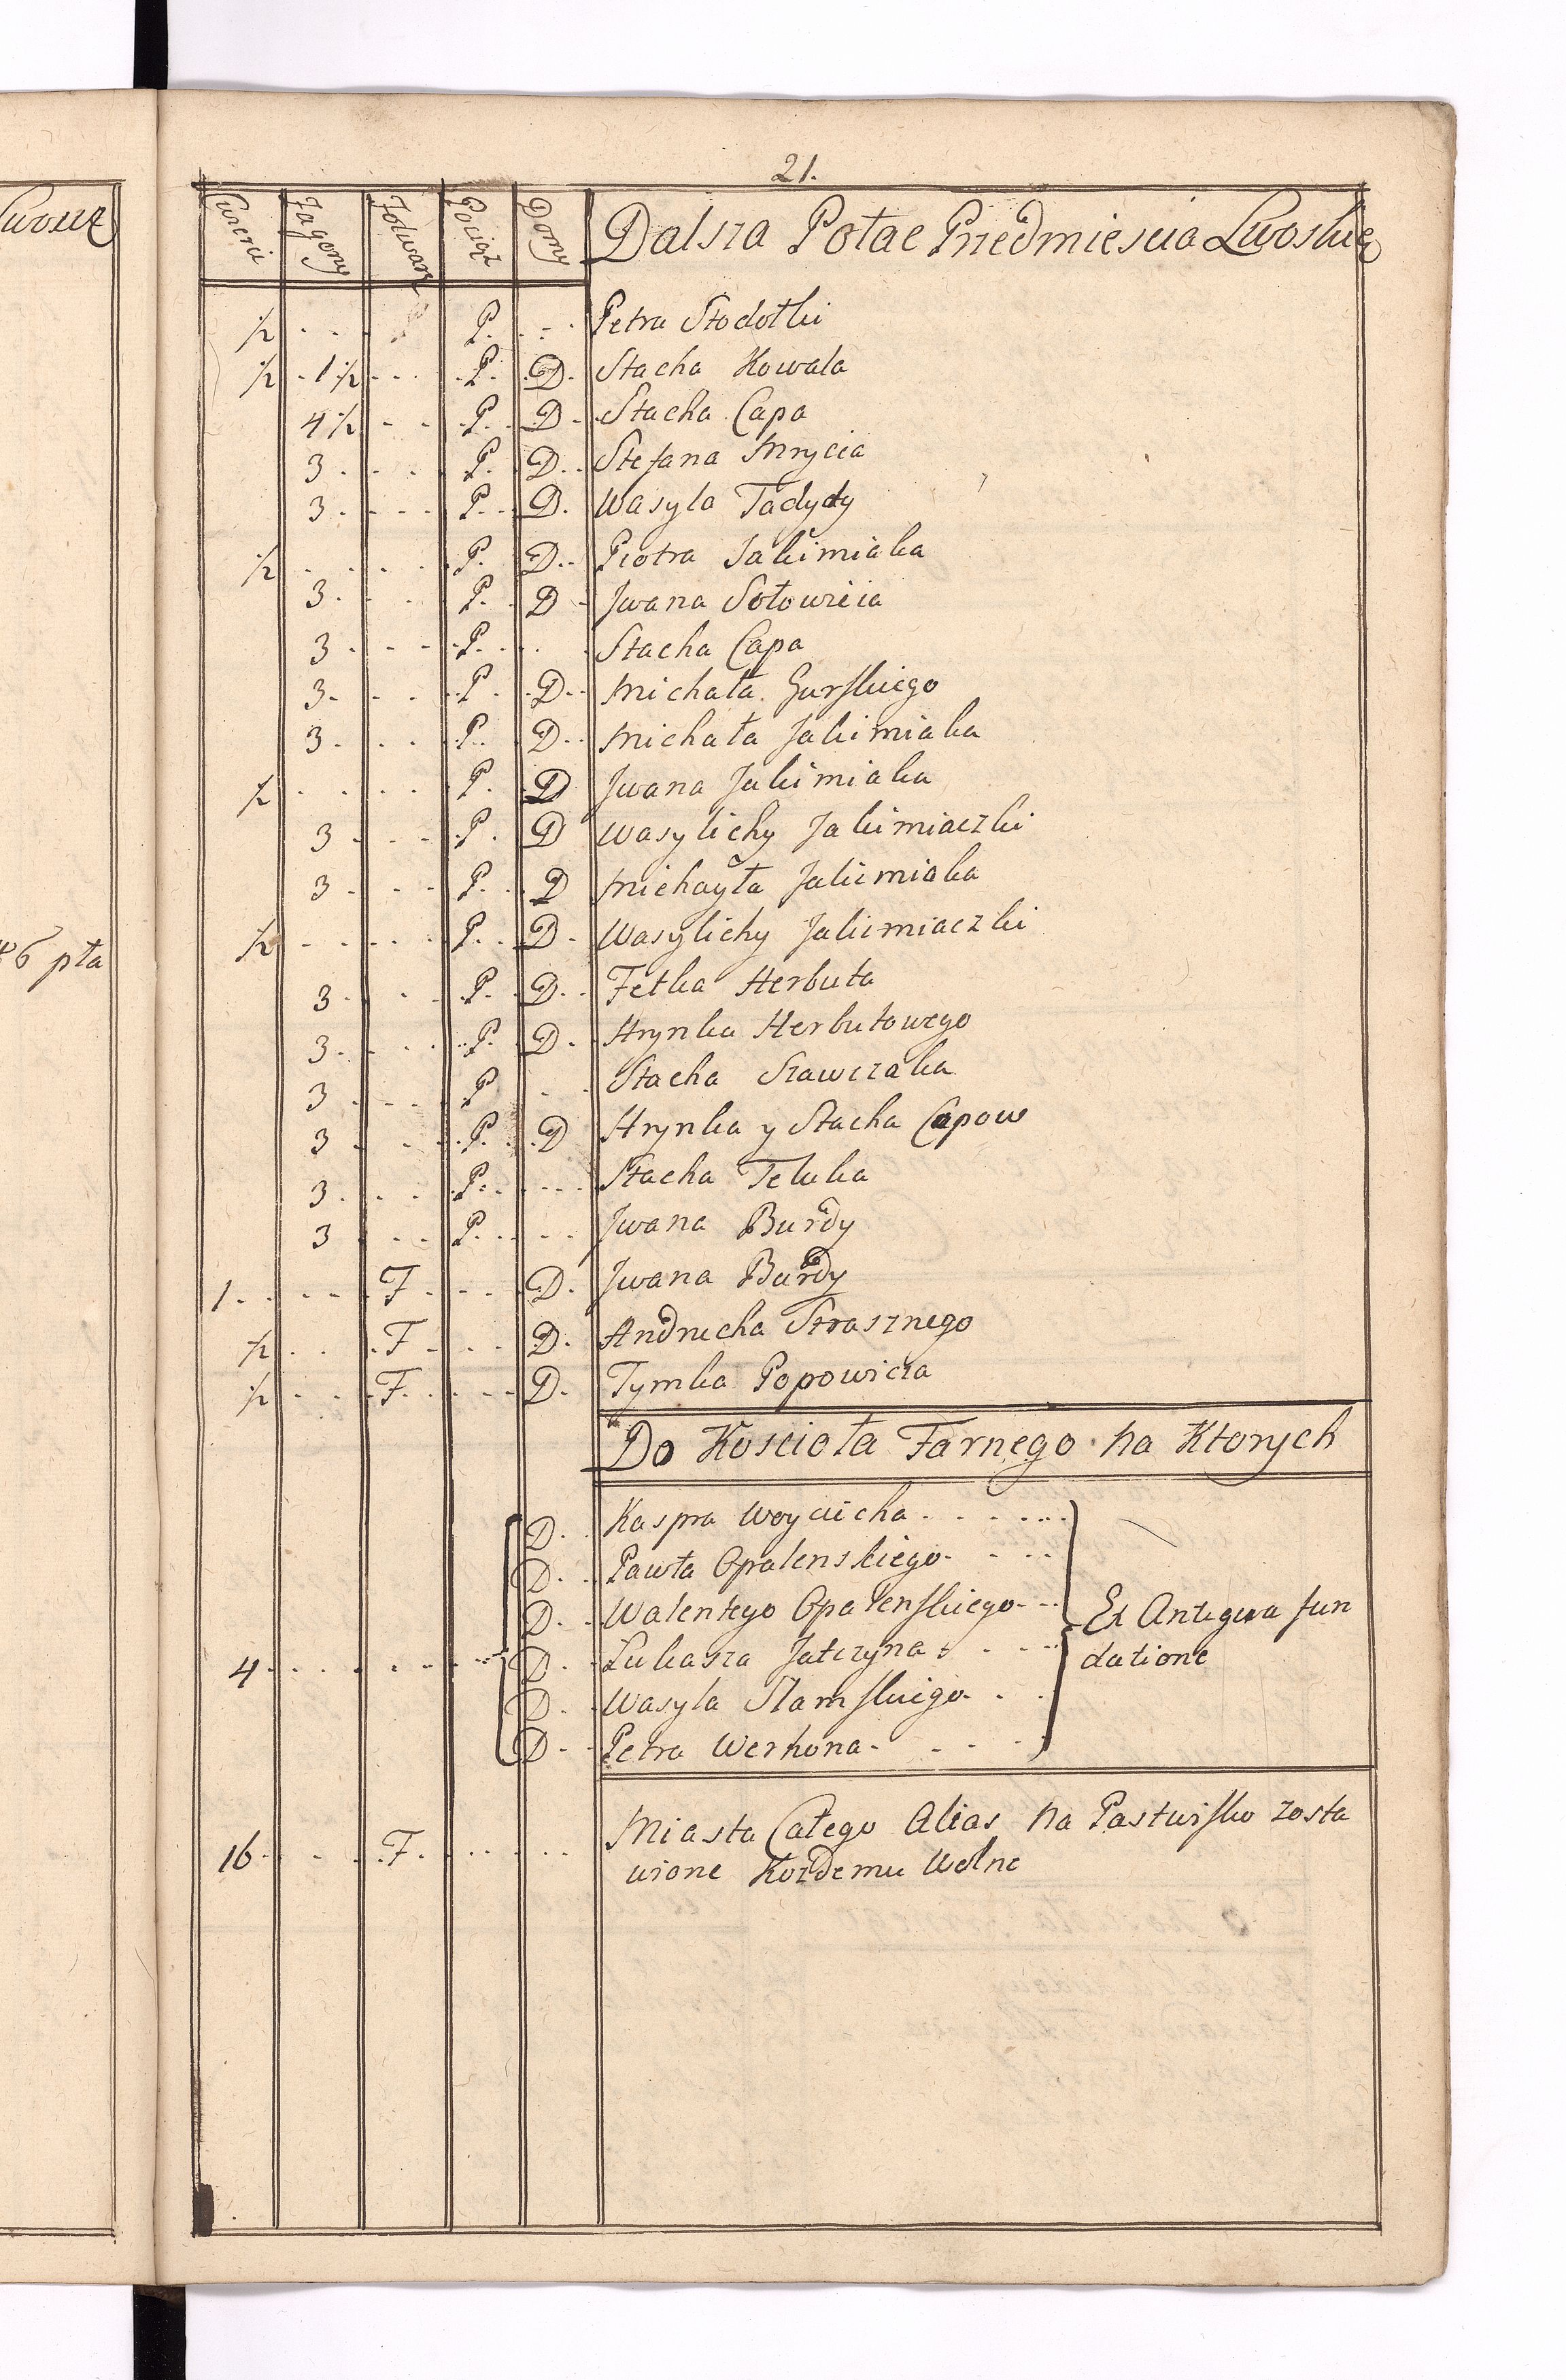 21.
Cwierci Zagony Folwark Pociąż Domy Dalsza Połać Przedmiescia Lwoskie
1/2 P. Petra Stodołki
1/2 1 1/2 P. D. Stacha Kowala
4 1/2 P. D Stacha Capa
3 P. D. Stefana Mrycia
3 P. D. Wasyla Tadydy
1/2 P. D. Piotra Jakimiaka
3 P. D Jwana Sołowieia
3 P. Stacha Capa
3 P. D. Michała Gurskiego
3 P. D. Michała Jakimiaka
1/2 P. D Jwana Jakimiaka
3 P. D Wasylichy Jakimiaczki
3 P. D Michayła Jakimiaka
1/2 P. D Wasylichy Jakimiaczki
3 P. D. Fetka Herbuta
3 P. D. Hrynka Herbutowego
3 P Stacha Szawczaka
3 P. D Hrynka y Stacha Capow
3 P. Stacha Teluka
3 P. Jwana Burdy
1 F D. Jwana Burdy
1/2 F D. Andrucha Strasznego
1/2 F. D. Tymka Popowicza
Do Koscioła Farnego na Ktorych
D. Kaspra Woycicha
D. Pawła Opalenskiego
D. Walentego Opalenskiego Ex Antiqua fun
4 D. Łukasza Jatczyna datione
D. Wasyla Slamskiego
D Petra Werhona
Miasta Całego Alias na Pastwisko zosta
16 F. wione Kozdemu Wolne
46 pta